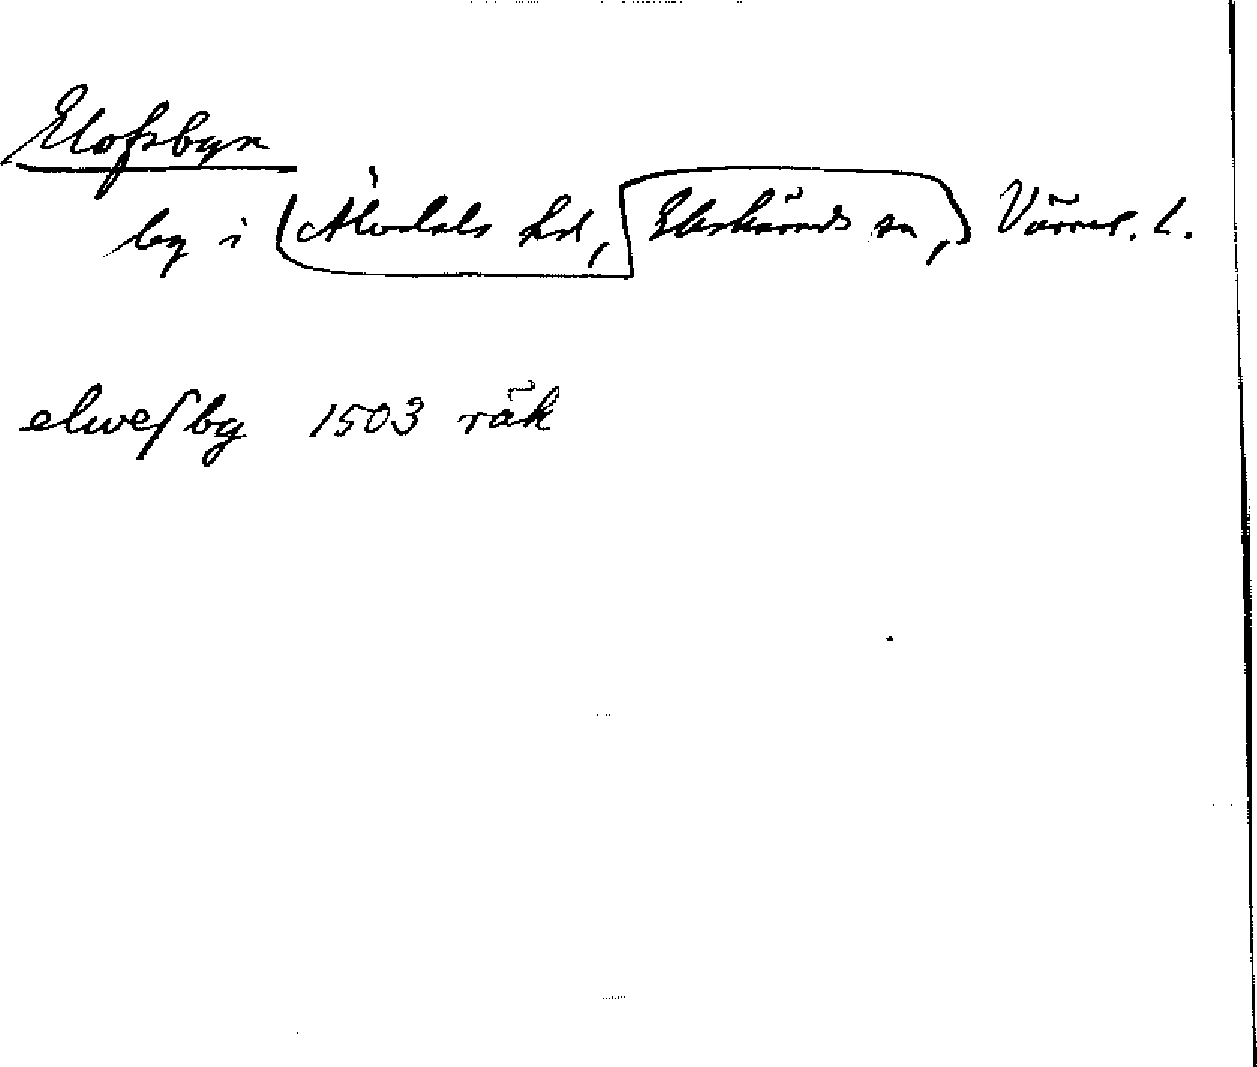 Elofsbyn
by i Älvdals hd, Ekshärads sn, Värml. l.
elwesby 1503 räk